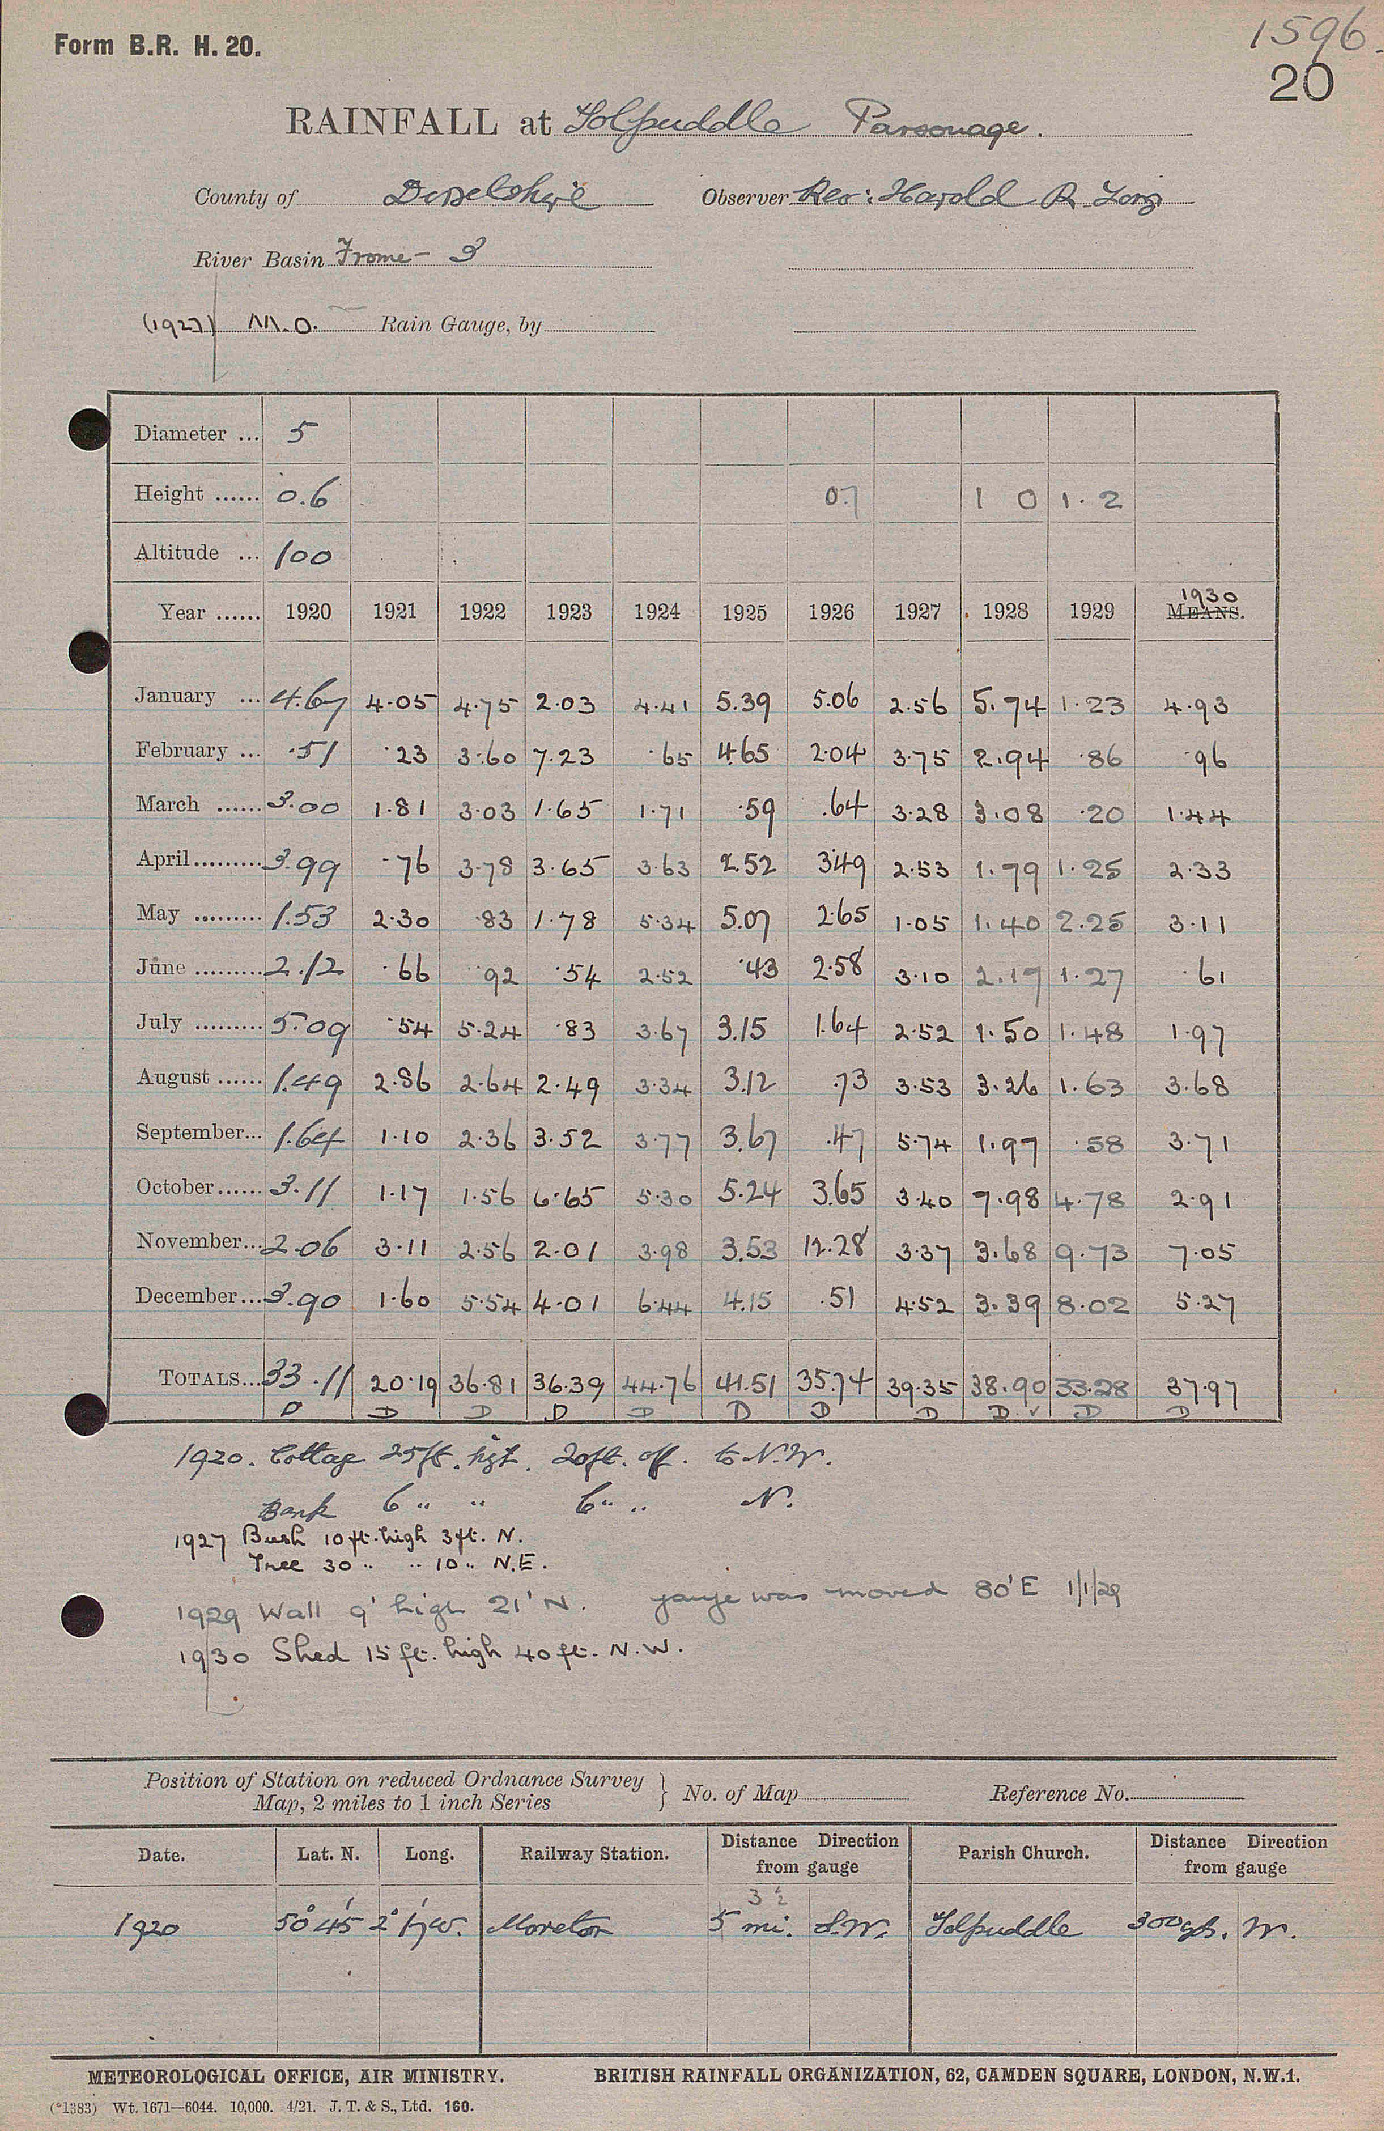 Form B.R. H. 20.
1596.
20
RAINFALL at Tolpuddle Parsonage.
County of Dorsetshire Observer Rev: Harold R. Long
River Basin Frome - 3
(1927) M.O. Rain Gauge, by
Diameter ... 5
Height ...... 0.6 0.7 1 0 1.2
Altitude ... 100
Year ...... 1920 1921 1922 1923 1924 1925 1926 1927 1928 1929 1930 MEANS.
January ... 4.67 4.05 4.75 2.03 4.41 5.39 5.06 2.56 5.74 1.23 4.93
February ... .51 .23 3.60 7.23 .65 4.65 2.04 3.75 2.94 .86 .96
March ...... 3.00 1.81 3.03 1.65 1.71 .59 .64 3.28 3.08 .20 1.44
April......... 3.99 .76 3.78 3.65 3.63 2.52 3.49 2.53 1.79 1.25 2.33
May ......... 1.53 2.30 .83 1.78 5.34 5.07 2.65 1.05 1.40 2.25 3.11
June ......... 2.12 .66 .92 .54 2.52 .43 2.58 3.10 2.17 1.27 .61
July ......... 5.09 .54 5.24 .83 3.67 3.15 1.64 2.52 1.50 1.48 1.97
August ...... 1.49 2.86 2.64 2.49 3.34 3.12 .73 3.53 3.26 1.63 3.68
September... 1.64 1.10 2.36 3.52 3.77 3.67 .47 5.74 1.97 .58 3.71
October...... 3.11 1.17 1.56 6.65 5.30 5.24 3.65 3.40 7.98 4.78 2.91
November... 2.06 3.11 2.56 2.01 3.98 3.53 12.28 3.37 3.68 9.73 7.05
December... 3.90 1.60 5.54 4.01 6.44 4.15 .51 4.52 3.39 8.02 5.27
TOTALS... 33.11 20.19 36.81 36.39 44.76 41.51 35.74 39.35 38.90 33.28 37.97
D D D D D D D D D ✓ D D
1920. Cottage 25ft. hgt. 20ft. off. to N.W.
Bank 6 " " 6 " " N.
1927 Bush 10 ft. high 3 ft. N.
Tree 30 " " 10 " N.E.
1929 Wall 9' high 21' N. gauge was moved 80' E 1/1/29
1930 Shed 15 ft. high 40 ft. N.W.
Position of Station on reduced Ordnance Survey Map, 2 miles to 1 inch Series } No. of Map Reference No.
Date. Lat. N. Long. Railway Station. Distance Direction from gauge Parish Church. Distance Direction from gauge
3½
1920 50° 45' 2° 17' W. Moreton 5 mi. S.W. Tolpuddle 300 yds. W.
METEOROLOGICAL OFFICE, AIR MINISTRY. BRITISH RAINFALL ORGANIZATION, 62, CAMDEN SQUARE, LONDON, N.W.1.
(*1383) Wt. 1671—6044. 10,000. 4/21. J. T. & S., Ltd. 160.